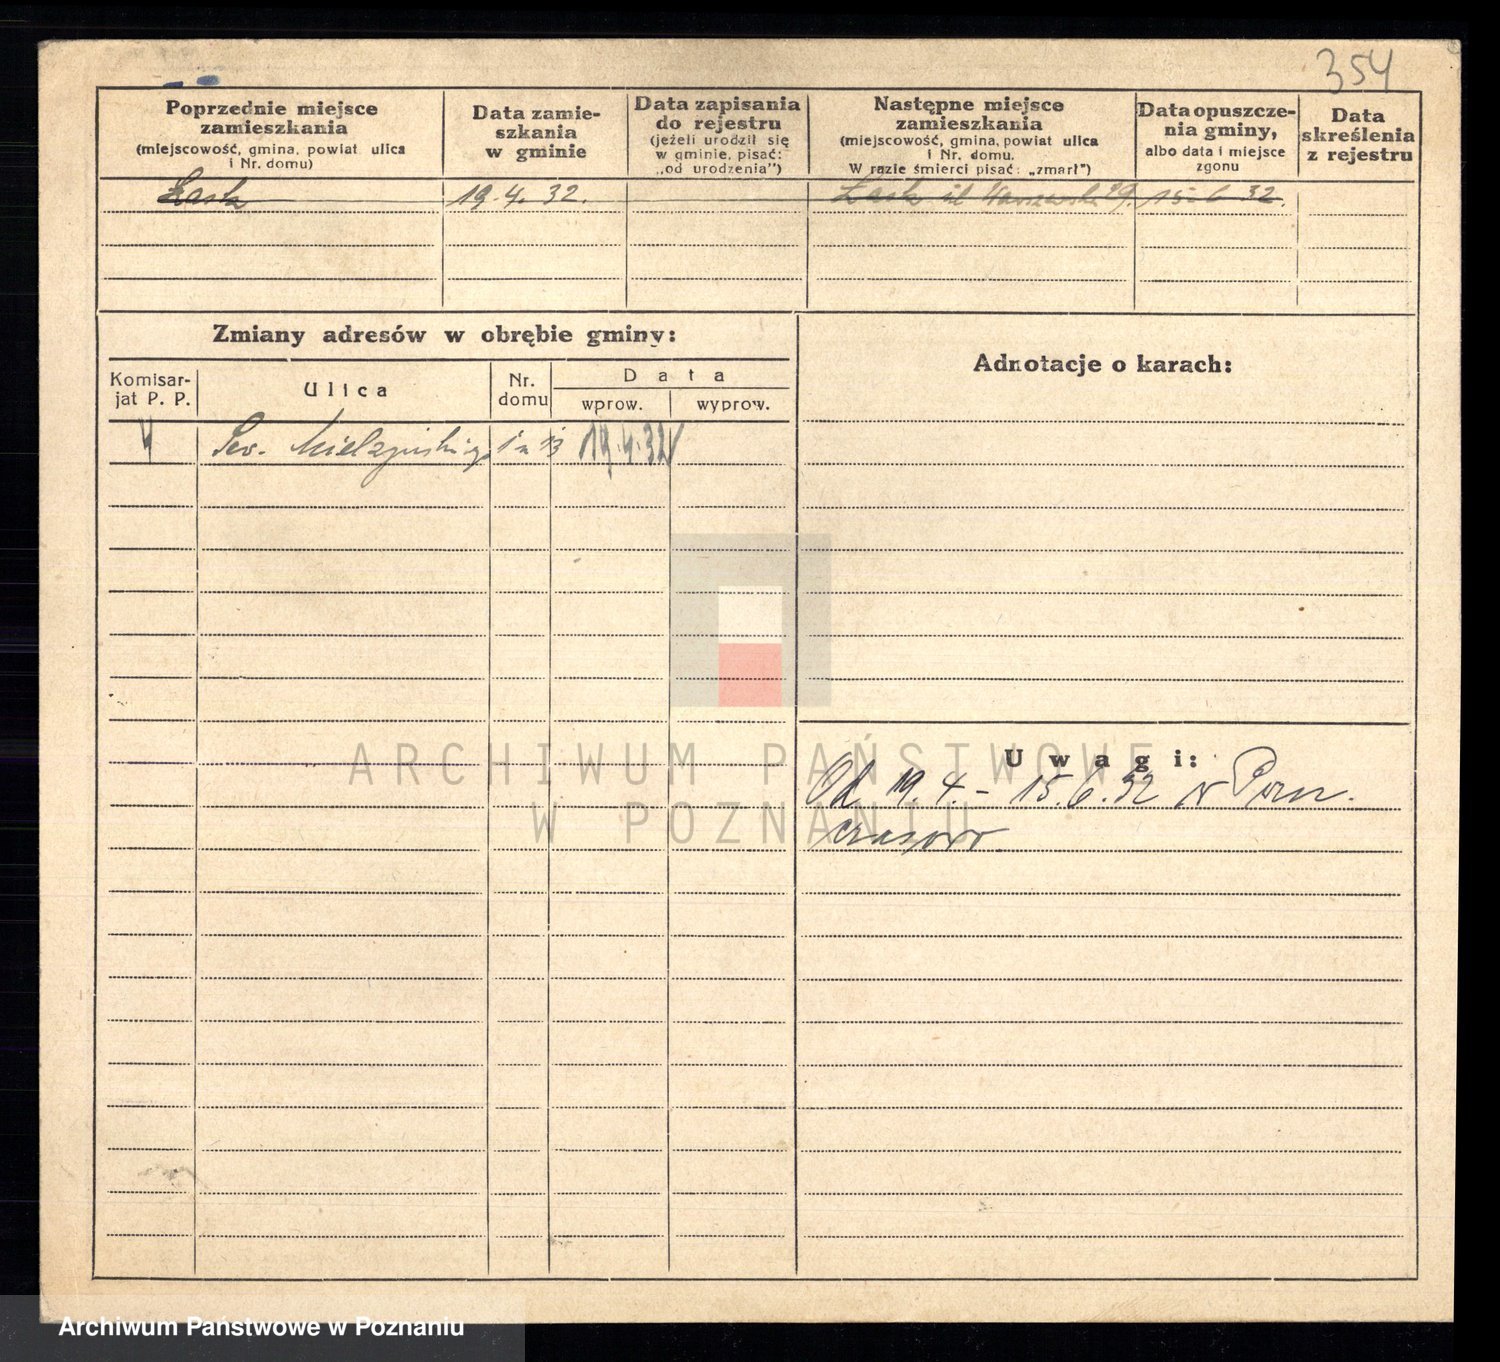 354
Poprzednie miejsce
zamieszkania
(miejscowość, gmina, powiat ulica
i Nr. domu)
Data zamie-
szkania
w gminie
Data zapisania
do rejestru
(jeżeli urodził się
w gminie, pisać:
„od urodzenia")
Następne miejsce
zamieszkania
(miejscowość, gmina, powiat ulica
i Nr. domu.
W razie śmierci pisać: „zmarł")
Data opuszcze-
nia gminy,
albo data i miejsce
zgonu
Data
skreślenia
z rejestru
Łask 19.4.32. Łask ul Warszawska 29. 15-6 32.
Zmiany adresów w obrębie gminy:
Adnotacje o karach:
Komisar-
jat P. P.
Ulica
Nr.
domu
Data
wprow.
wyprow.
4 Sew. Mielżyńskiego 19.4.32
Uwagi:
Od 19.4. - 15.6.32 w Pozn.
czasowo.
ARCHIWUM PAŃSTWOWE
W POZNANIU
Archiwum Państwowe w Poznaniu